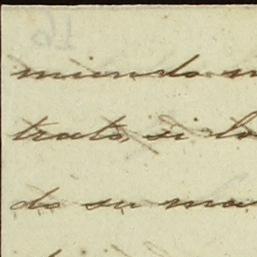 miendo
trato, si lo
do su ma